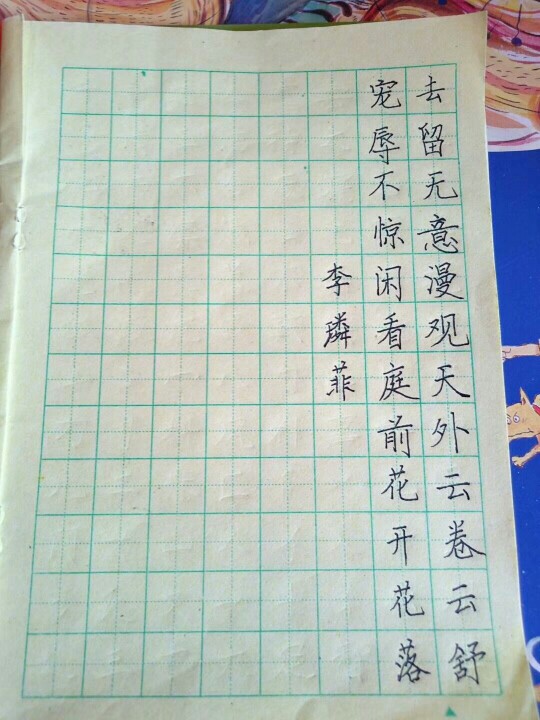 去留无意漫观天外云卷云舒
宠辱不惊闲看庭前花开花落
李璘菲